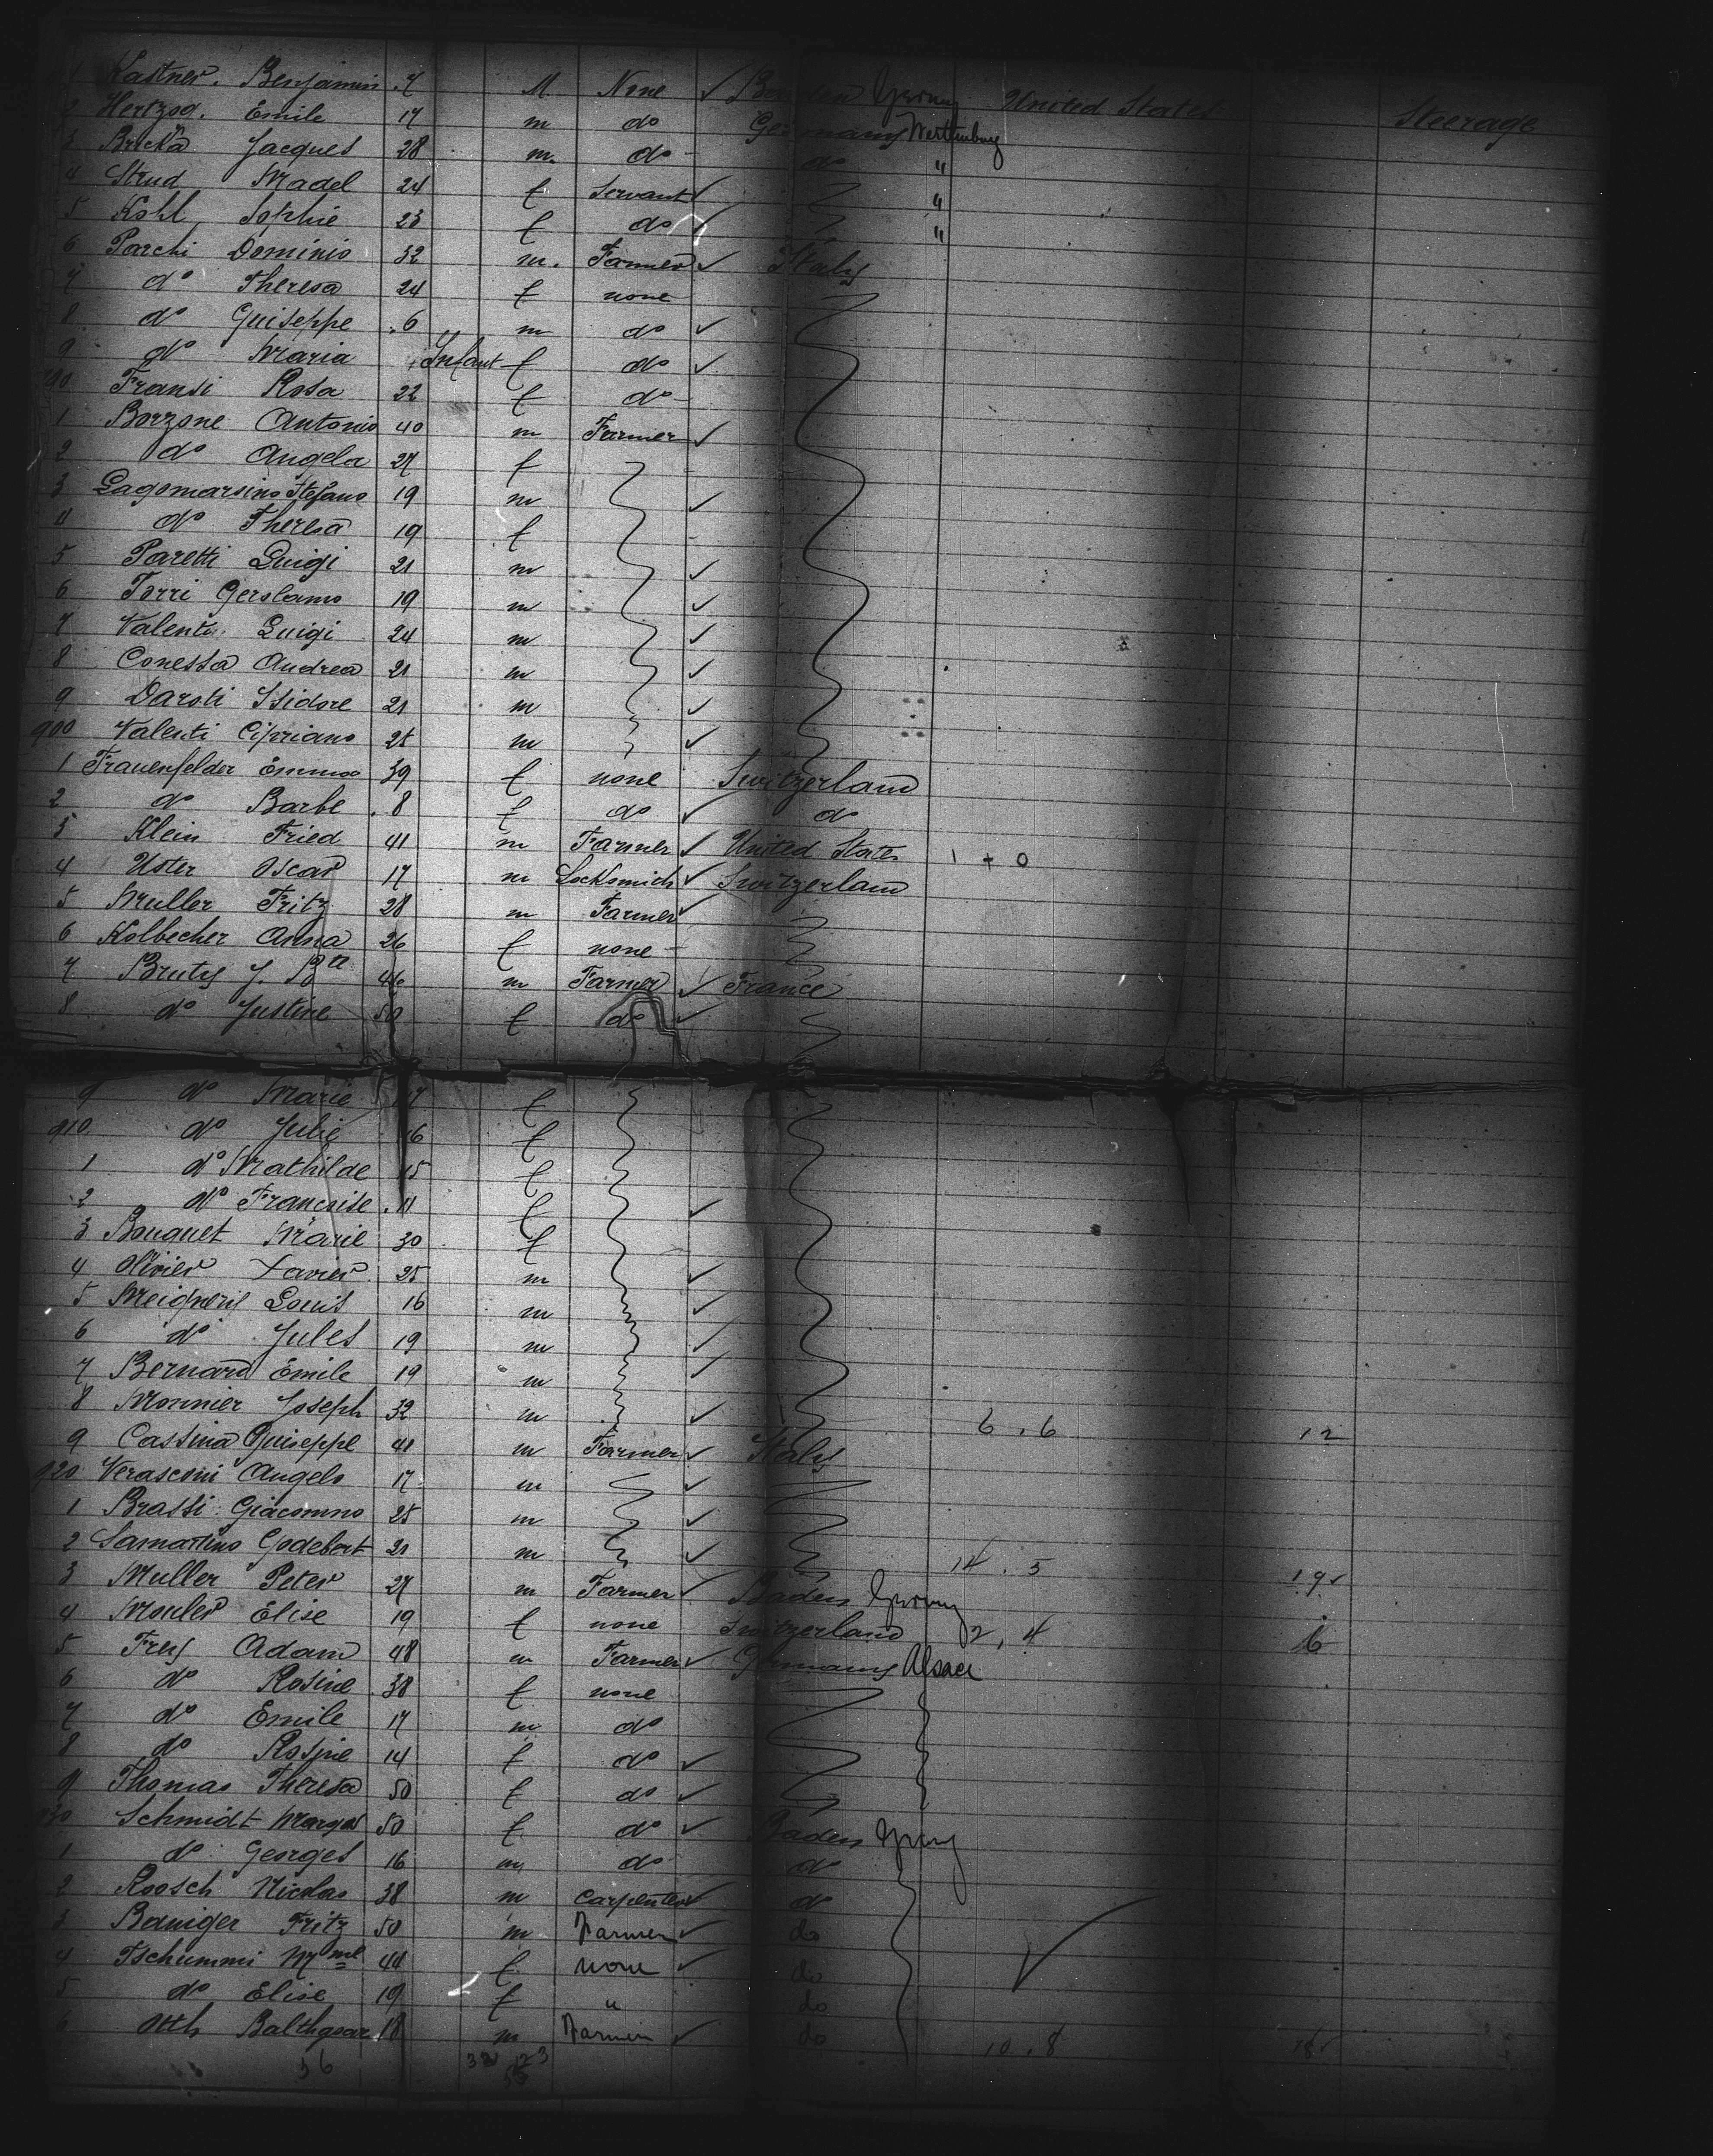 1 Kastner. Benjamin .7 M None ✓ Baden Grmny United States Steerage
2 Hertzog. Emile 17 m do Germany Werttenburg
3 Bricka Jacques 28 m. do do "
4 Strud Madel 24 f Servant ✓ "
5 Kohl Sophie 23 f do ✓ "
6 Parchi Dominio 32 m. Farmer ✓ Italy
7 do Theresa 24 f none
8 do Guiseppe .6 m do ✓
9 do Maria Infant f do ✓
890 Fransi Rosa 22 f do
1 Borzone Antonio 40 m Farmer ✓
2 do Angela 27 f
3 Lagomarsino Stefano 19 m ✓
4 do Theresa 19 f
5 Paretti Luigi 21 m ✓
6 Torri Gerolamo 19 m ✓
7 Valenti Luigi 24 m ✓
8 Conessa Andrea 21 m ✓
9 Daroti Isidore 21 m ✓
900 Valenti Cipriano 25 m ✓
1 Frauenfelder Emma 39 f none Switzerland
2 do Barbe .8 f do ✓ do
3 Klein Fried 41 m Farmer ✓ United States 1 + 0
4 Uster Oscar 17 m Locksmich ✓ Switzerland
5 Muller Fritz 28 m Farmer ✓
6 Kolbecher Anna 26 f none
7 Bruty J. Bte 46 m Farmer ✓ France
8 do Justine 50 f do ✓
9 do Marie 17 f
910 do Julie 16 f
1 do Mathilde 15 f
2 do Francoise .11 f ✓
3 Bouquet Marie 30 f
4 Olivier Xavier 25 m ✓
5 Louis 16 m ✓
6 do Jules 19 m ✓
7 Bernard Emile 19 m ✓
8 Monnier Joseph 32 m ✓ 6 . 6 12
9 Cassina Guiseppe 41 m Farmer ✓ Italy
920 Verasconi Angelo 17 m ✓
1 Brassi Giacommo 25 m ✓
2 Samartino Godebert 21 m ✓ 14 . 5 19
3 Muller Peter 27 m Farmer ✓ Baden Grmny
4 Mouler Elise 19 f none Switzerland 2 . 4 6
5 Frey Adam 48 m Farmer ✓ Germany Alsace
6 do Rosine 38 f none
7 do Emile 17 m do
8 do Rosine 14 f do ✓
9 Thomas Theresa 50 f do ✓
930 Schmidt Margot 50 f do ✓ Baden Grmny
1 do Georges 16 m do do
2 Roosch Nicolas 38 m Carpenter ✓ do
3 Baniger Fritz 50 m Farmer ✓ do
4 Tschummi Mme 44 f none ✓ do
5 do Elise 19 f " do
6 Otth Balthasar 18 m Farmer ✓ do 10 . 8 18
56 33 23